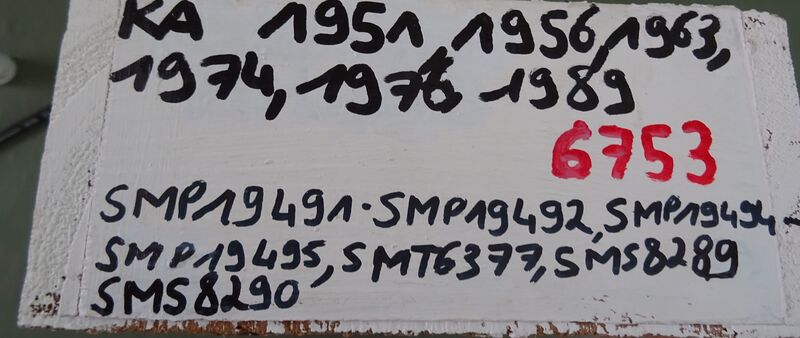 KA 1951, 1956, 1963,
1974, 1976, 1989
6753
SMP19491-SMP19492, SMP19494-
SMP19495, SMT6377, SMS8289
SMS8290